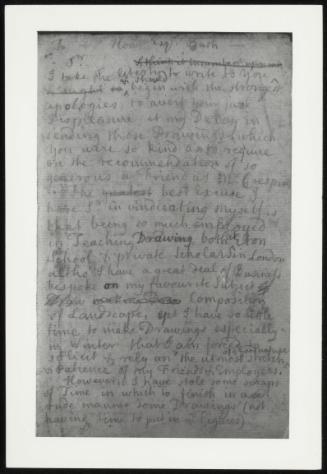 To Hoare Esqr Bath
Sr. I think it incumbent upon me
I take the liberty to write to You
& ought to, & should begin with the strongest
apologies, to avert your just
Displeasure at my Delay in
sending those Drawings which
you were so kind as to require
on the recommendation of so
generous a Friend as Mr Crespin
The greatest best Excuse I
have Sr. in vindicating myself is
that being so much employed
in Teaching Drawing both on
School & private Scholars in London
altho I have a great deal of Business
bespoke on my favourite Subject
Composition
of Landscape, yet I have so little
time to make Drawings especially
in Winter that I am forced to
sollicit & rely on the utmost stretch
& patience of my Friends & Employers.
However I have stole some scraps
of Time in which to finish in a
rude manner some Drawings (not
having time to put in ye Figures)